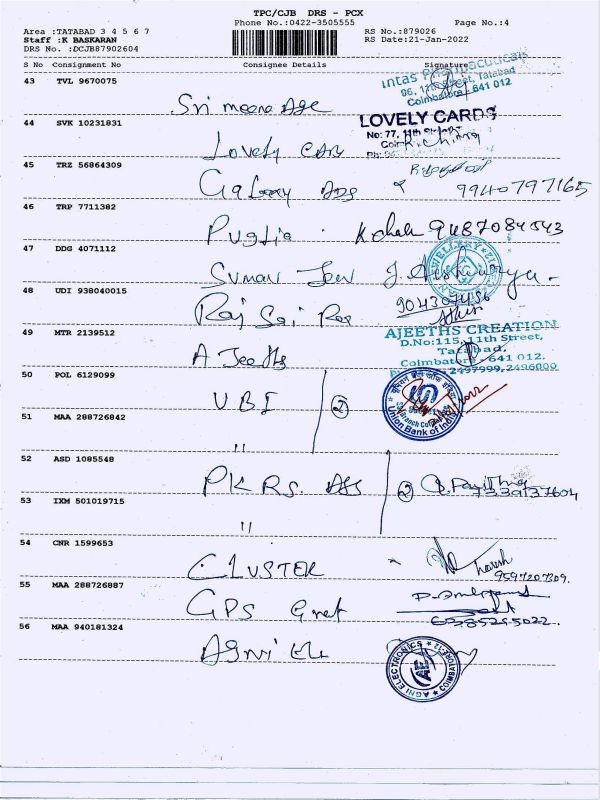 TPC/CJB DRS - PCX
Phone No.:0422-3505555 Page No.:4
Area :TATABAD 3 4 5 6 7 RS No.:879026
Staff :K BASKARAN RS Date:21-Jan-2022
DRS No. :DCJB87902604
S No Consignment No Consignee Details Signature
intas Pharmaceuticals
43 TVL 9670075
86, 11th Street, Tatabad
Coimbatore - 641 012
Sri meena Age
LOVELY CARDS
44 SVK 10231831
No: 77, 11th Street,
Lovely
45 TRZ 56864309
Galaxy
9940797165
46 TRP 7711382
Puglia . K chah 9487084543
47 DDG 4071112
Suman Jew J. Aishwarya
48 UDI 938040015
9043071456
Raj Sai
AJEETHS CREATION
49 MTR 2139512
D.No:115, 11th Street,
Tatabad,
Coimbatore - 641 012.
2497999, 2496000
A Jeeths
50 POL 6129099
UBI (2)
Union Bank of India
51 MAA 288726842
"
52 ASD 1085548
PKRS. Ass (2)
7339137604
53 IXM 501019715
"
54 CNR 1599653
CLUSTER
Harish
9597207309.
55 MAA 288726887
GPS
6385295022.
56 MAA 940181324
Agni Ele
AGNI ELECTRONICS
COIMBATORE-12
AE